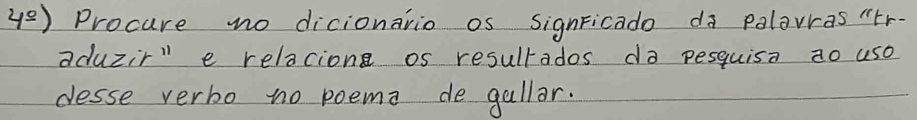 4º) Procure no dicionário os signficado da palavras "tr-
aduzir" e relacione os resultados da pesquisa ao uso
desse verbo no poema de gullar.